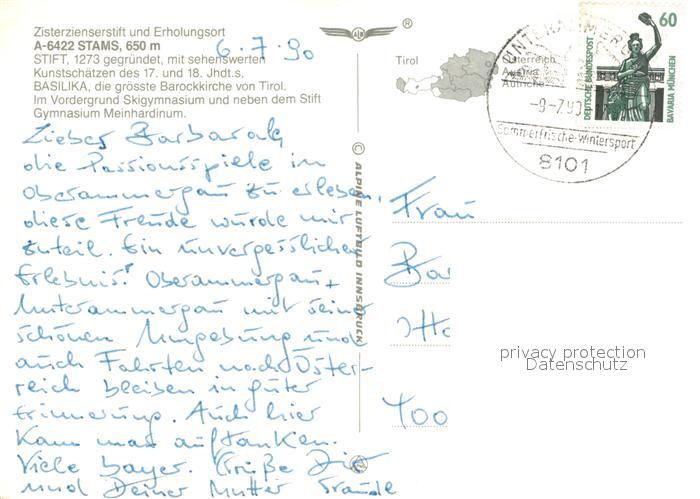 Zisterzienserstift und Erholungsort
A-6422 STAMS, 650 m
STIFT, 1273 gegründet, mit sehenswerten
Kunstschätzen des 17. und 18. Jhdt.s,
BASILIKA, die grösste Barockkirche von Tirol.
Im Vordergrund Skigymnasium und neben dem Stift
Gymnasium Meinhardinum.
6.7.90
Liebes
die Passionsspiele in
Oberammergau zu erleben,
diese Freude wurde mir
zuteil. Ein unvergessliches
Erlebnis! Oberammergau +
Unterammergau mit seiner
schönen Umgebung und
auch Fahrten nach Öster-
reich bleiben in guter
Erinnerung. Auch hier
kann man auftanken.
Viele bayer. Grüße Dir
und Deiner Mutter Traude
© ALPINE LUFTBILD INNSBRUCK
®
Tirol
Österreich
Austria
Autriche
UNTERAMMERGAU
-9-7.90
Sommerfrische-Wintersport
8101
60
DEUTSCHE BUNDESPOST
BAVARIA MÜNCHEN
Frau
Bar
Otto
400
privacy protection
Datenschutz